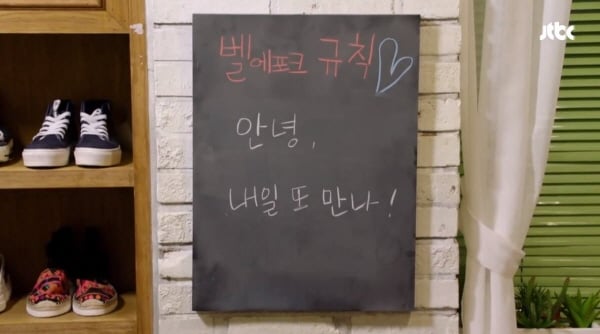 jtbc
벨에포크 규칙
안녕,
내일 또 만나!